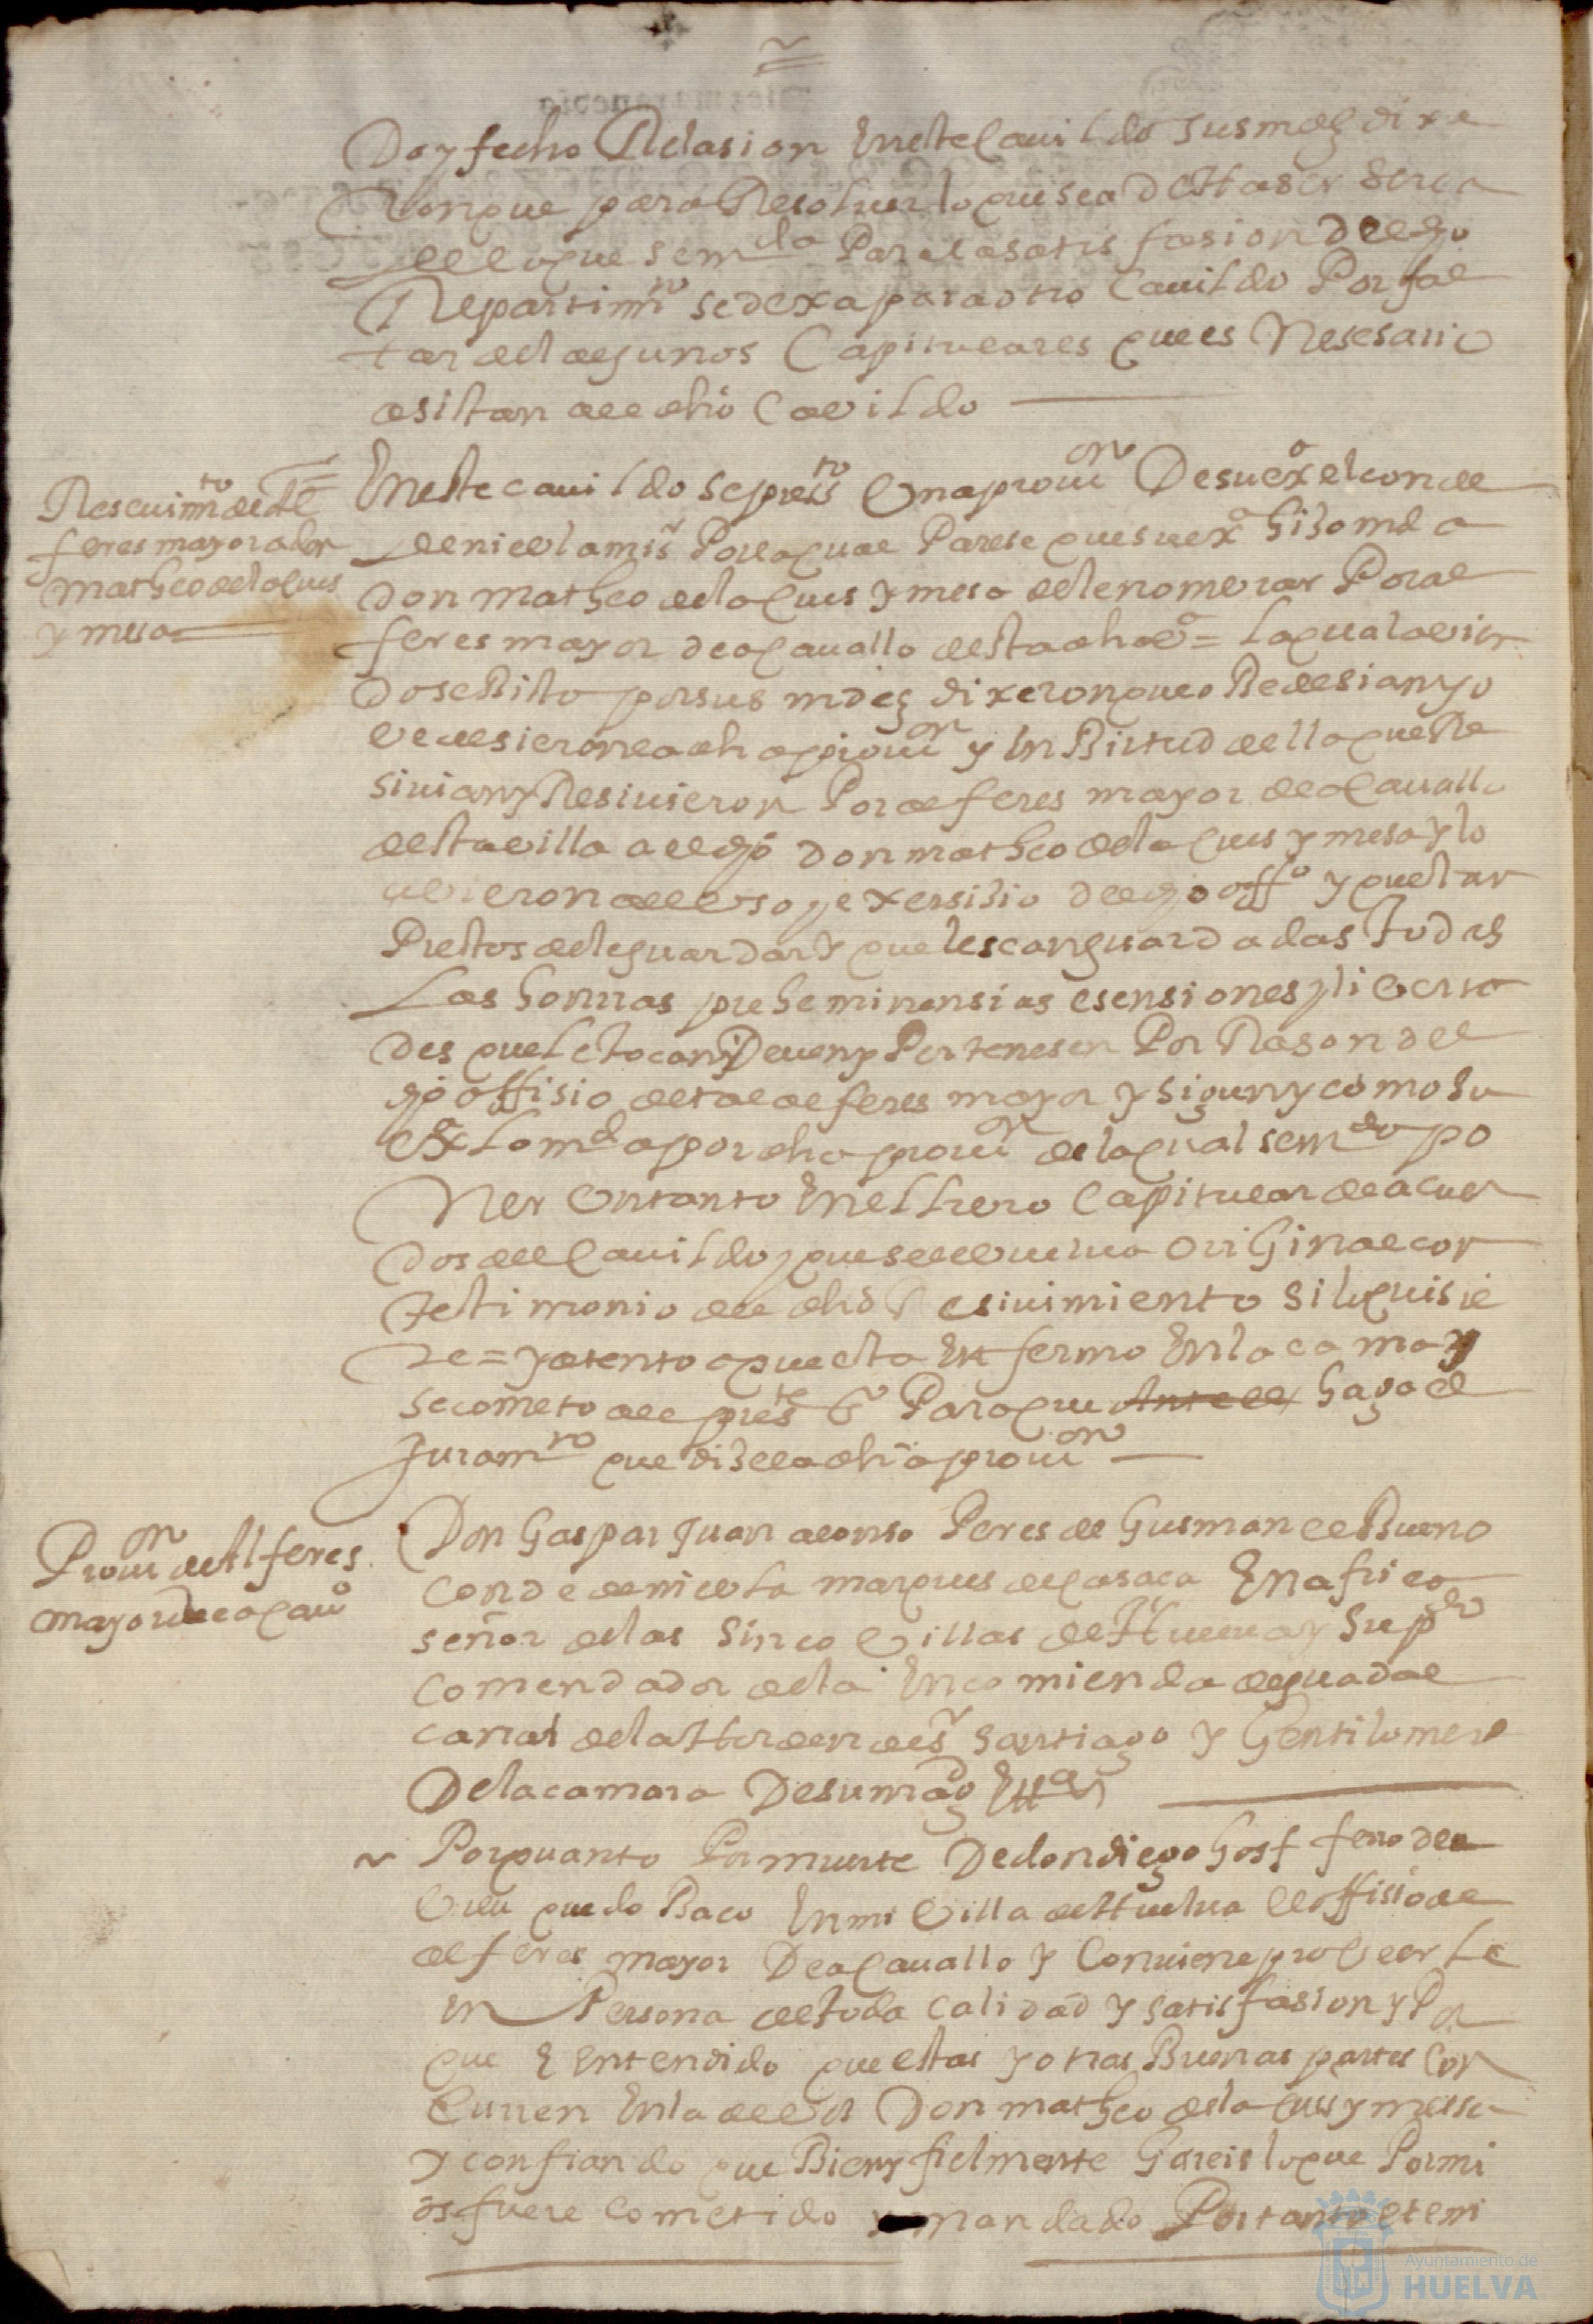 Doy fecho Relasion En este Cauildo sus mdes dixe
ron que para Resoluer lo que se a de Haser serca
de lo que se mda Para la satisfasion del dho
Repartimto se dexa para otro Cauildo Por fal
tar del algunos Capitulares que es Nesesario
asistan al dho Cavildo
Resceuimto de Al
feres mayor a don
Matheo de la Cueis
y mesa
En este cauildo se presto Una prouion De su exa el conde
de niebla mi sr Por la qual Parese que su exa hiso mrd a
don Matheo de la Cueis y mesa de le nombrar Por al
feres mayor de a Cauallo desta dha va = La qual avien
dose Visto por sus mdes dixeron que obedesian y o
bedesieron la dha prouion y En Birtud della que Re
siuian y Resiuieron Por alferes mayor de a Cauallo
desta villa al dho Don matheo de la Cueis y mesa y lo
avieron al uso y exersisio del dho offo y que estan
Prestos de le guardar y que le sean guardadas todas
Las honrras preheminensias esensiones y liverta
des que le tocan y Deuen y Pertenesen Por Rason del
dho offisio de tal alferes mayor y sigun y como su
exa lo mda por dha prouion de la qual se mdo po
ner Un tanto En el Libro Capitular de acuer
dos del Cauildo y que se le vuelua original con
testimonio del dho Resiuimiento si lo quisie
re = y atento a que esta Enfermo En la cama y
se comete al preste sno Para que Ante el haga el
Juramto que dise la dha prouion
Prouon de Alferes
mayor de a Cauo
Don Gaspar Juan alonso Peres de Gusman el Bueno
Conde de niebla marques de Casasa En africa
señor de las Sinco Villas de Huelua y su pdo
Comendador de la Encomienda de guadal
canal de la Horden de sr Santiago y Gentilomere
De la camara De su magd Etta
Por quanto Por muerte De don diego
quedo Baco En mi Villa de Huelua el offisio de
alferes mayor De a Cauallo y Conuiene proveerle
en Persona de toda calidad y satisfasion y Por
que E Entendido que estas y otras Buenas partes Con
Curren En la de vos Don matheo de la Cueis y messa
y confiando que Bien y fielmente hareis lo que Por mi
os fuere cometido y mandado Por tanto el e mi
Ayuntamiento de
HUELVA